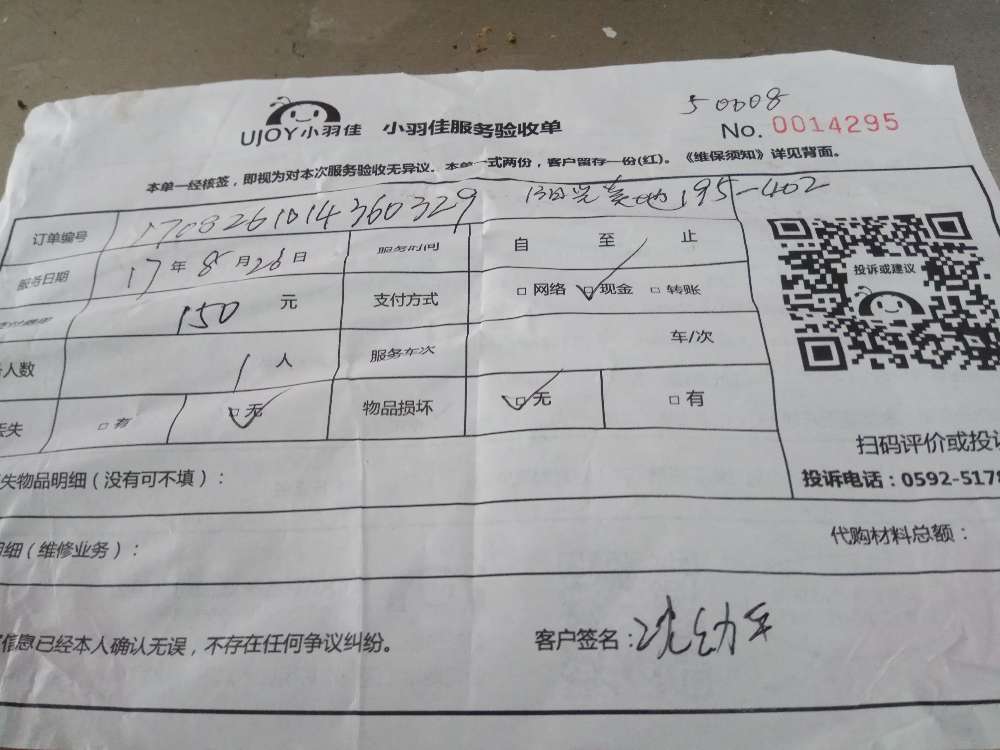 50008
UJOY小羽佳 小羽佳服务验收单
No. 0014295
本单一经核签，即视为对本次服务验收无异议。本单一式两份，客户留存一份(红)。《维保须知》详见背面。
订单编号 1708261014360329 195-402
服务日期 17年8月26日 服务时间 自 至 止
150元 支付方式 □网络 □现金 □转账
人数 1人 服务车次 车/次
丢失 □有 □无 物品损坏 □无 □有
投诉或建议
扫码评价或投诉
失物品明细（没有可不填）：
投诉电话：0592-5178
明细（维修业务）： 代购材料总额：
信息已经本人确认无误，不存在任何争议纠纷。 客户签名：沈幼年